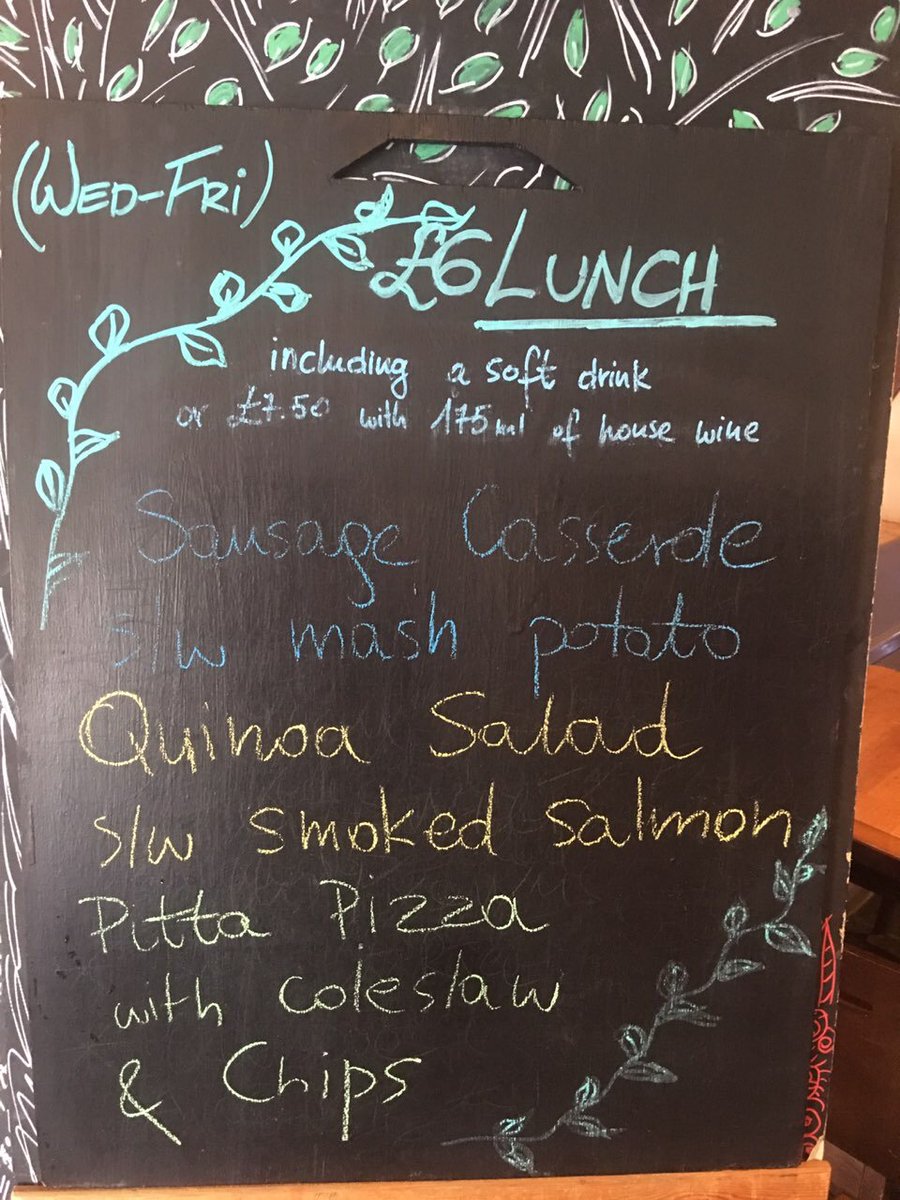 (WED-FRI)
£6 LUNCH
including a soft drink
or £7.50 with 175ml of house wine
Sausage Casserole
s/w mash potato
Quinoa Salad
s/w smoked salmon
Pitta Pizza
with coleslaw
& Chips